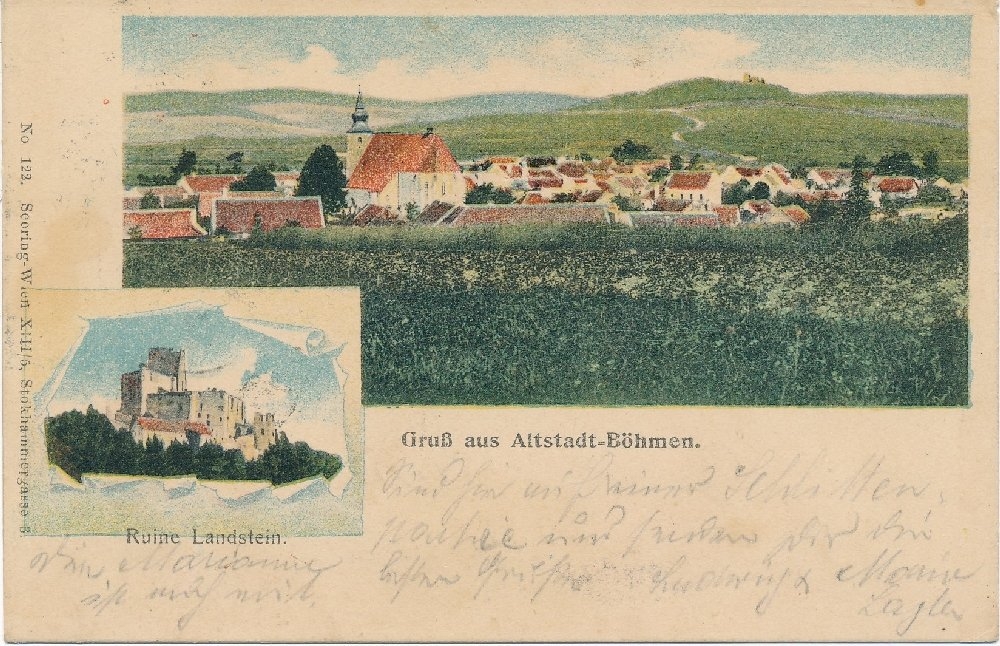 No 122. Seering-Wien XVII/5, Stokhammergasse 3.
Gruß aus Altstadt-Böhmen.
Ruine Landstein.
Sind hier auf einer Schlitten-
und senden dir die
besten Grüße Ludwig & Marie
Marianne
ist auch mit.